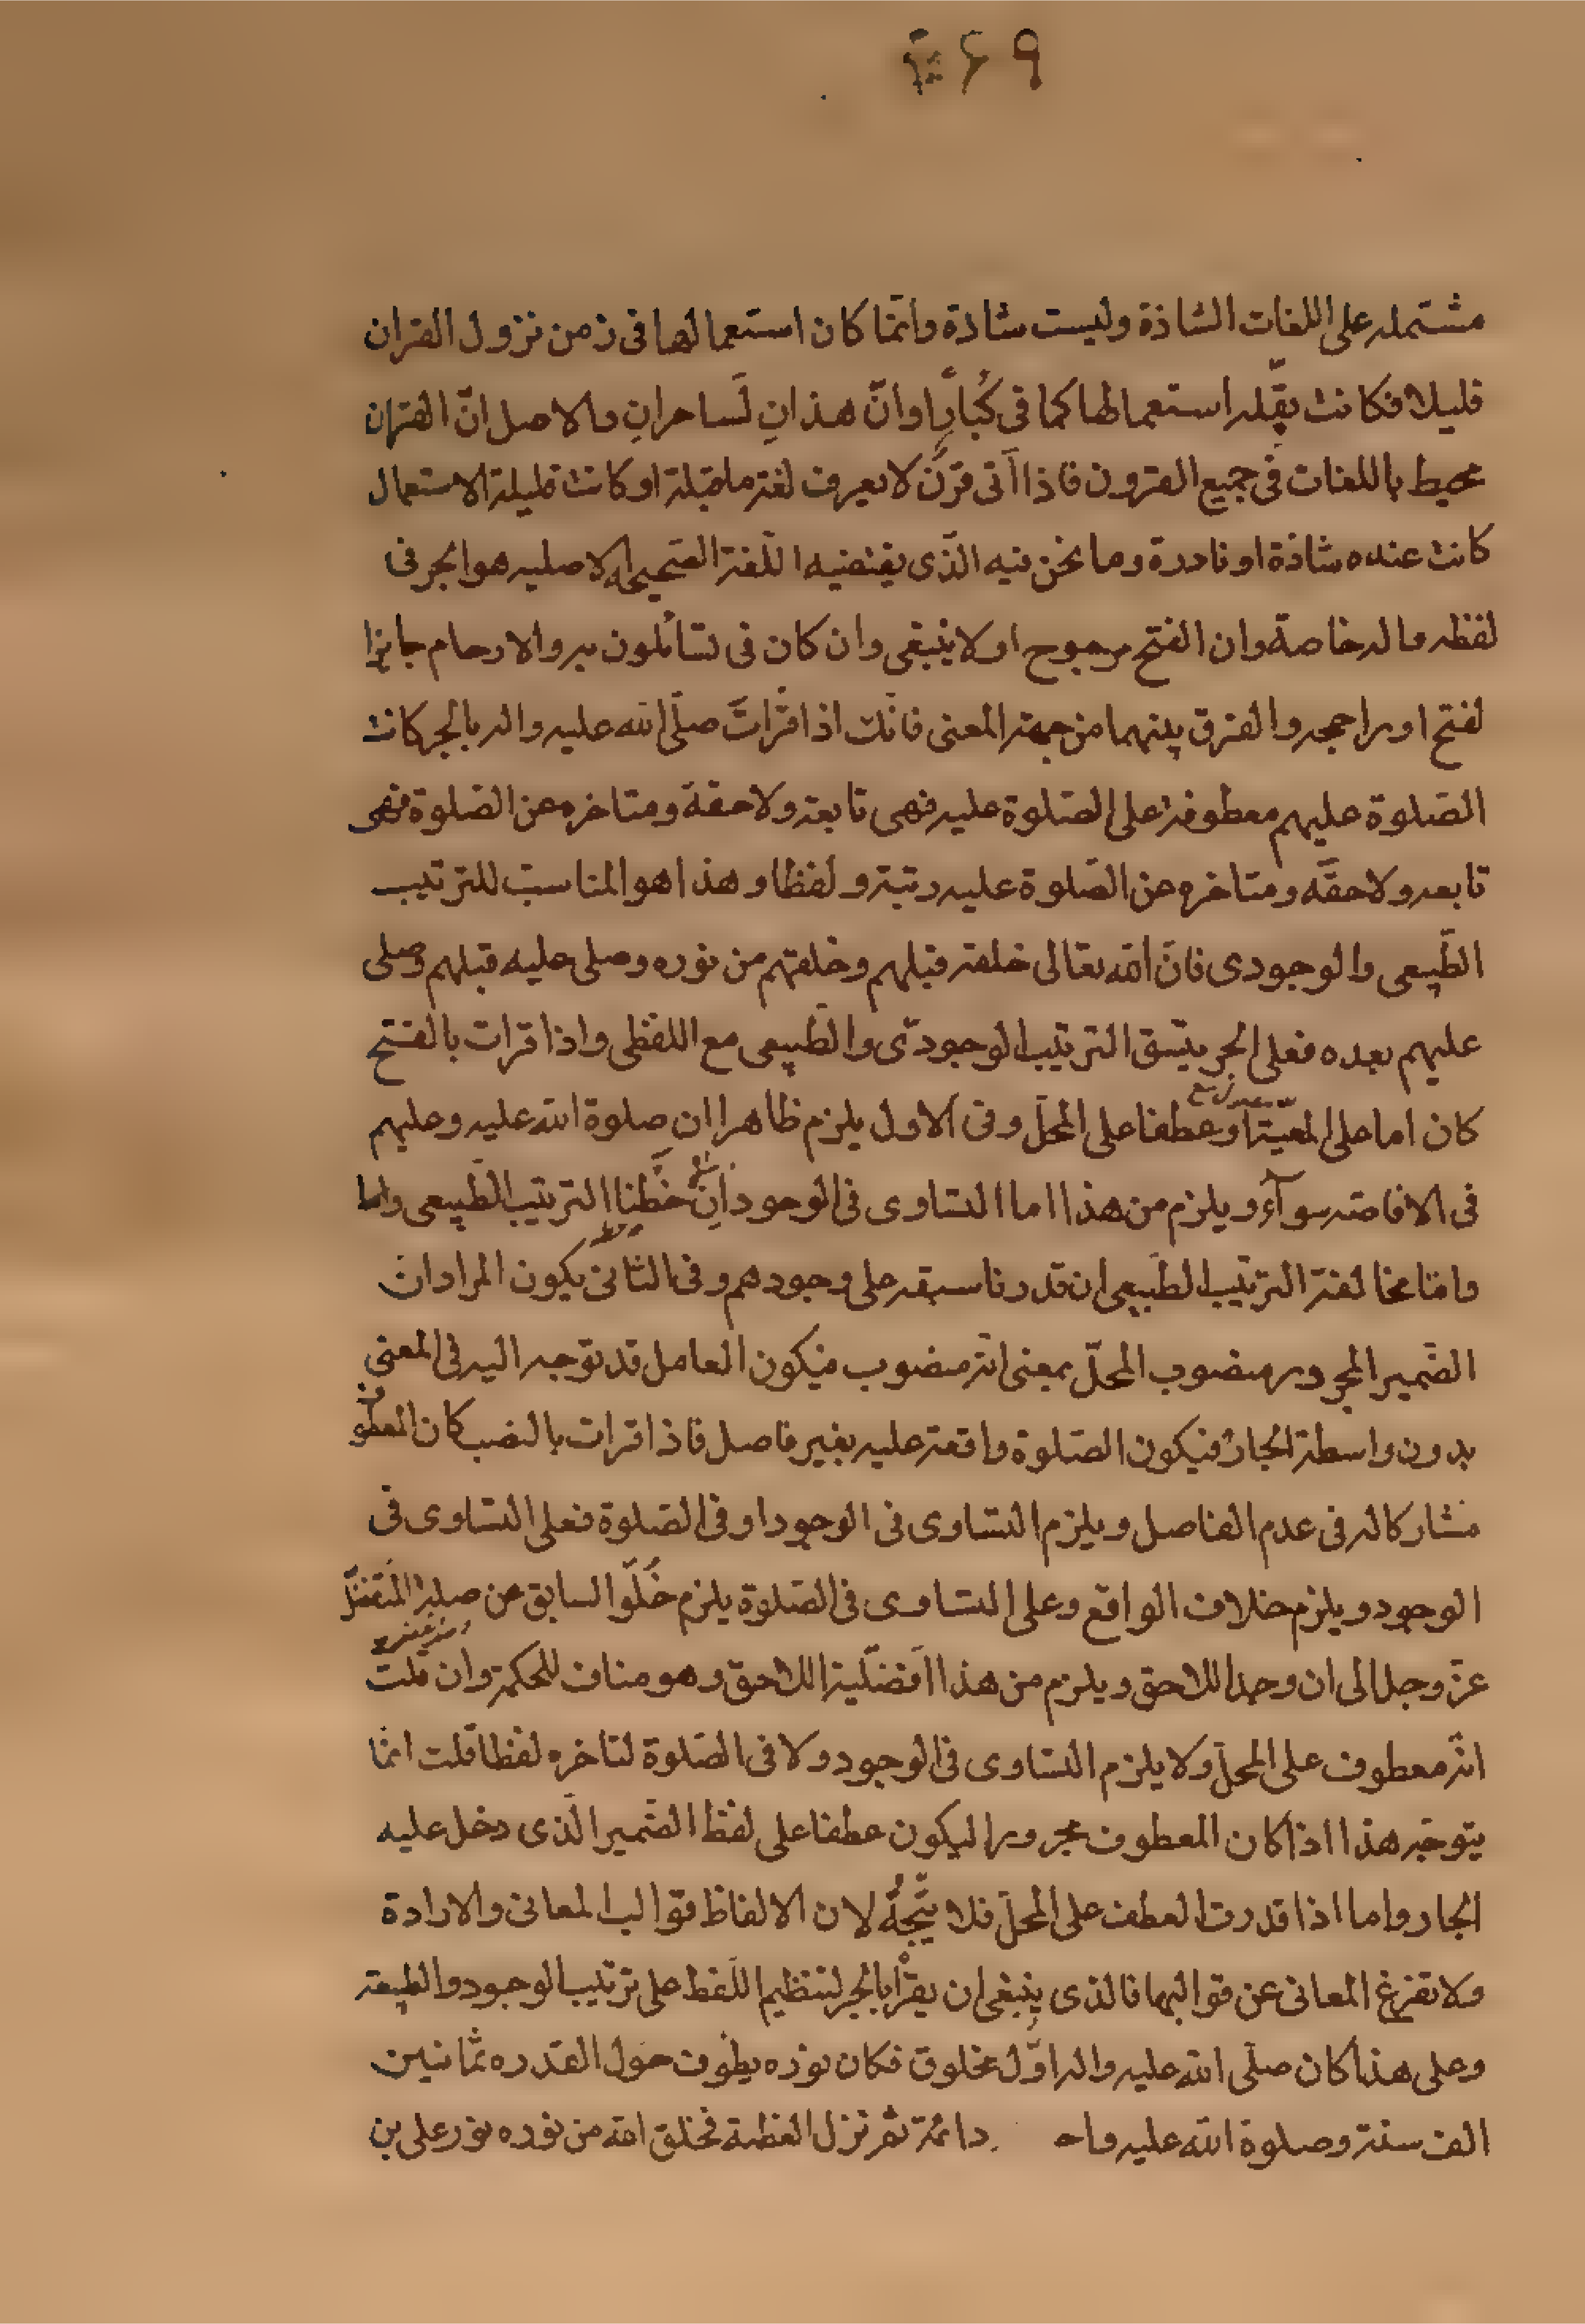 ۶۹
مشتمله على اللغات الشاذة وليست شاذة وانّما كان استعمالها فى زمن نزول القران
قليلا فكانت بقلّه استعمالها كما فى كُبّارًا وانّ هذانِ لَساحرانِ والاصل انّ القران
محيط باللغات فى جميع القرون فاذا اَتى قرنٌ لا يعرف لغة ما قبله او كانت قليلة الاستعمال
كانت عنده شاذة او نادرة وما نحن فيه الّذى يقتضيه اللّغة الصّحيحة الاصليه هو الجر فى
لفظه واله خاصة وان الفتح مرجوح او لا ينبغى وان كان فى تسائلون به والارحام جايزا
لفتح او راجحه والفرق بينهما من جهة المعنى فانّك اذا قرأتَ صلّى الله عليه واله بالجر كانت
الصّلوة عليهم معطوفة على الصّلوة عليه فهى تابعة ولاحقة ومتاخره عن الصّلوة فهى
تابعه ولاحقه ومتاخره عن الصّلوة عليه رتبة ولفظا وهذا هو المناسب للترتيب
الطّبيعى والوجودى فانّ الله تعالى خلقه قبلهم وخلقهم من نوره وصلى عليه قبلهم وصلى
عليهم بعده فعلى الجر يتّسق الترتيب الوجودى والطّبيعى مع اللفظى واذا قرات بالفتح
كان اما على المعيّة او عطفا على المحلّ وفى الاول يلزم ظاهرا ان صلوة الله عليه وعليهم
فى الافاضه سوآء ويلزم من هذا اما التساوى فى الوجود اِنْ حَفِظنا الترتيب الطّبيعى واما
وامّا مخالفة الترتيب الطّبيعى ان قدرنا سبقه على وجودهم وفى الثانى يكون المراد انّ
الضّمير المجرور منصوب المحلّ بمعنى انّه منصوب فيكون العامل قد توجه اليه فى المعنى
بدون واسطة الجارّ فيكون الصّلوة واقعة عليه بغير فاصل فاذا قرات بالنصب كان المعطوف
مشاركا له فى عدم الفاصل ويلزم التساوى فى الوجود او فى الصّلوة فعلى التساوى فى
الوجود ويلزم خلاف الواقع وعلى التساوى فى الصّلوة يلزم خُلُوّ السابق عن صلة المتفضّل
عزّ وجل الى ان وجد اللاحق ويلزم من هذا اَفضليّة اللاحق وهو مناف للحكمة وان قلت
انّه معطوف على المحلّ ولا يلزم التساوى فى الوجود ولا فى الصّلوة لتاخره لفظا قلت انمّا
يتوجّه هذا اذا كان المعطوف مجرورا ليكون عطفا على لفظ الضّمير الّذى دخل عليه
الجار واما اذا قدرت العطف على المحلّ فلا يتّجهُ لان الالفاظ قوالب المعانى والارادة
ولا تفرغ المعانى عن قوالبها فالذى ينبغى ان يقرأ بالجر لتنظيم اللّفظ على ترتيب الوجود والطبيعة
وعلى هذا كان صلّى الله عليه واله اوّل مخلوق فكان نوره يطوف حول القدره ثمانين
الف سنة وصلوة الله عليه دائمة ثم نزل العظمة فخلق الله من نوره نور على بن